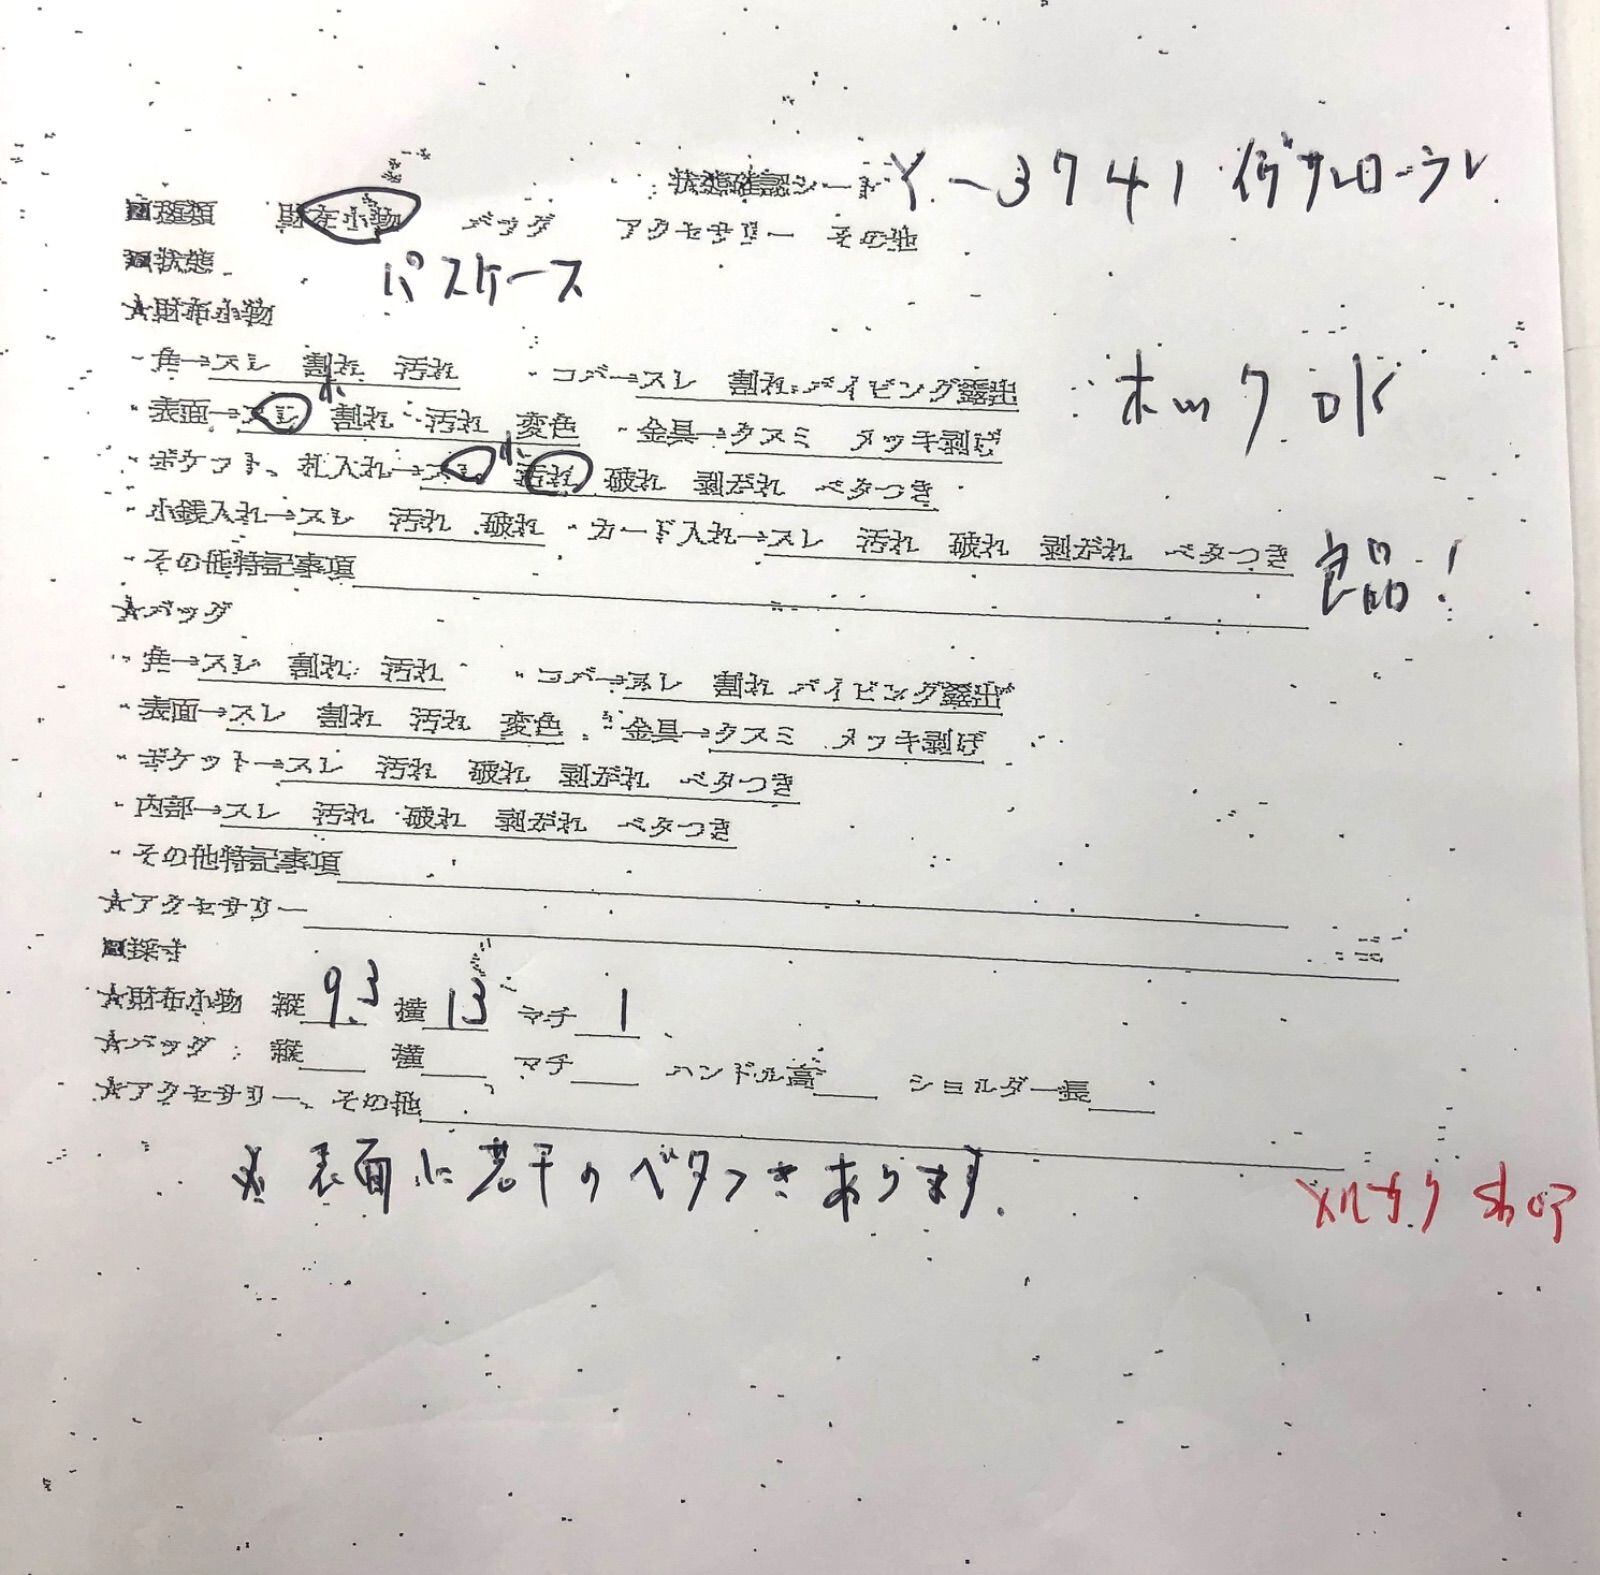 状態確認シート Y-3741 イヴサンローラン
■種類 財布小物 バッグ アクセサリー その他
■状態 パスケース
★財布小物
・角→スレ 割れ 汚れ ・コバ→スレ 割れ パイピング露出
・表面→スレ 小 割れ 汚れ 変色 ・金具→クスミ メッキ剥げ ホック OK
・ポケット、札入れ→スレ 小 汚れ 破れ 剥がれ ベタつき
・小銭入れ→スレ 汚れ 破れ ・カード入れ→スレ 汚れ 破れ 剥がれ ベタつき 良品!
・その他特記事項
★バッグ
・角→スレ 割れ 汚れ ・コバ→スレ 割れ パイピング露出
・表面→スレ 割れ 汚れ 変色 ・金具→クスミ メッキ剥げ
・ポケット→スレ 汚れ 破れ 剥がれ ベタつき
・内部→スレ 汚れ 破れ 剥がれ ベタつき
・その他特記事項
★アクセサリー
■採寸
★財布小物 縦 9.3 横 13 マチ 1
★バッグ 縦 横 マチ ハンドル高 ショルダー長
★アクセサリー、その他
※表面に若干のベタつきあります.